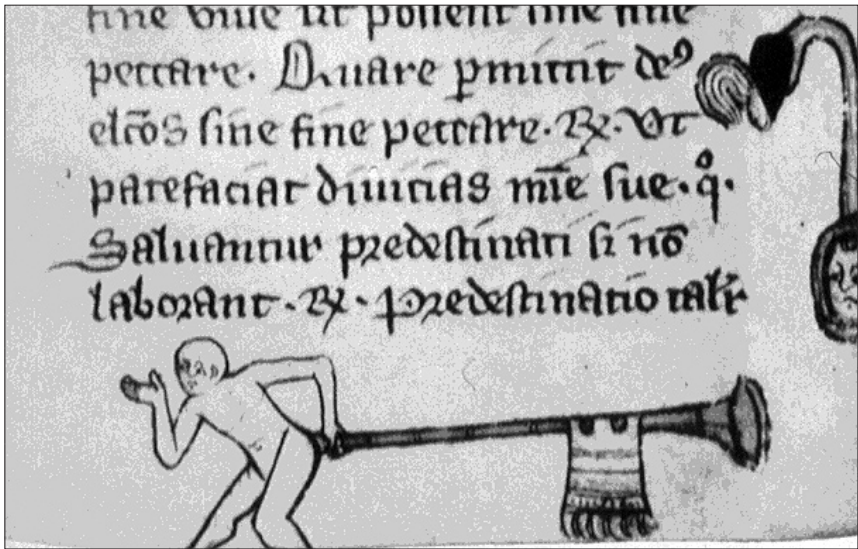 sine fine
peccare. Quare ꝑmittit deꝰ
elcōs sine fine peccare. ℞. Vt
patefaciat diuicias mīe sue. q̊.
Saluantur predestinati si nō
laborant. ℞. predestinatio tal̓r